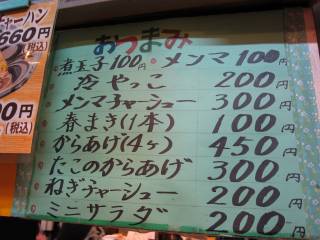 チャーハン
660円
(税込)
00円
(税込)
おつまみ
煮玉子100円・メンマ100円
冷やっこ 200円
メンマチャーシュー 300円
春まき(1本) 100円
からあげ(4ヶ) 450円
たこのからあげ 300円
ねぎチャーシュー 200円
ミニサラダ 200円